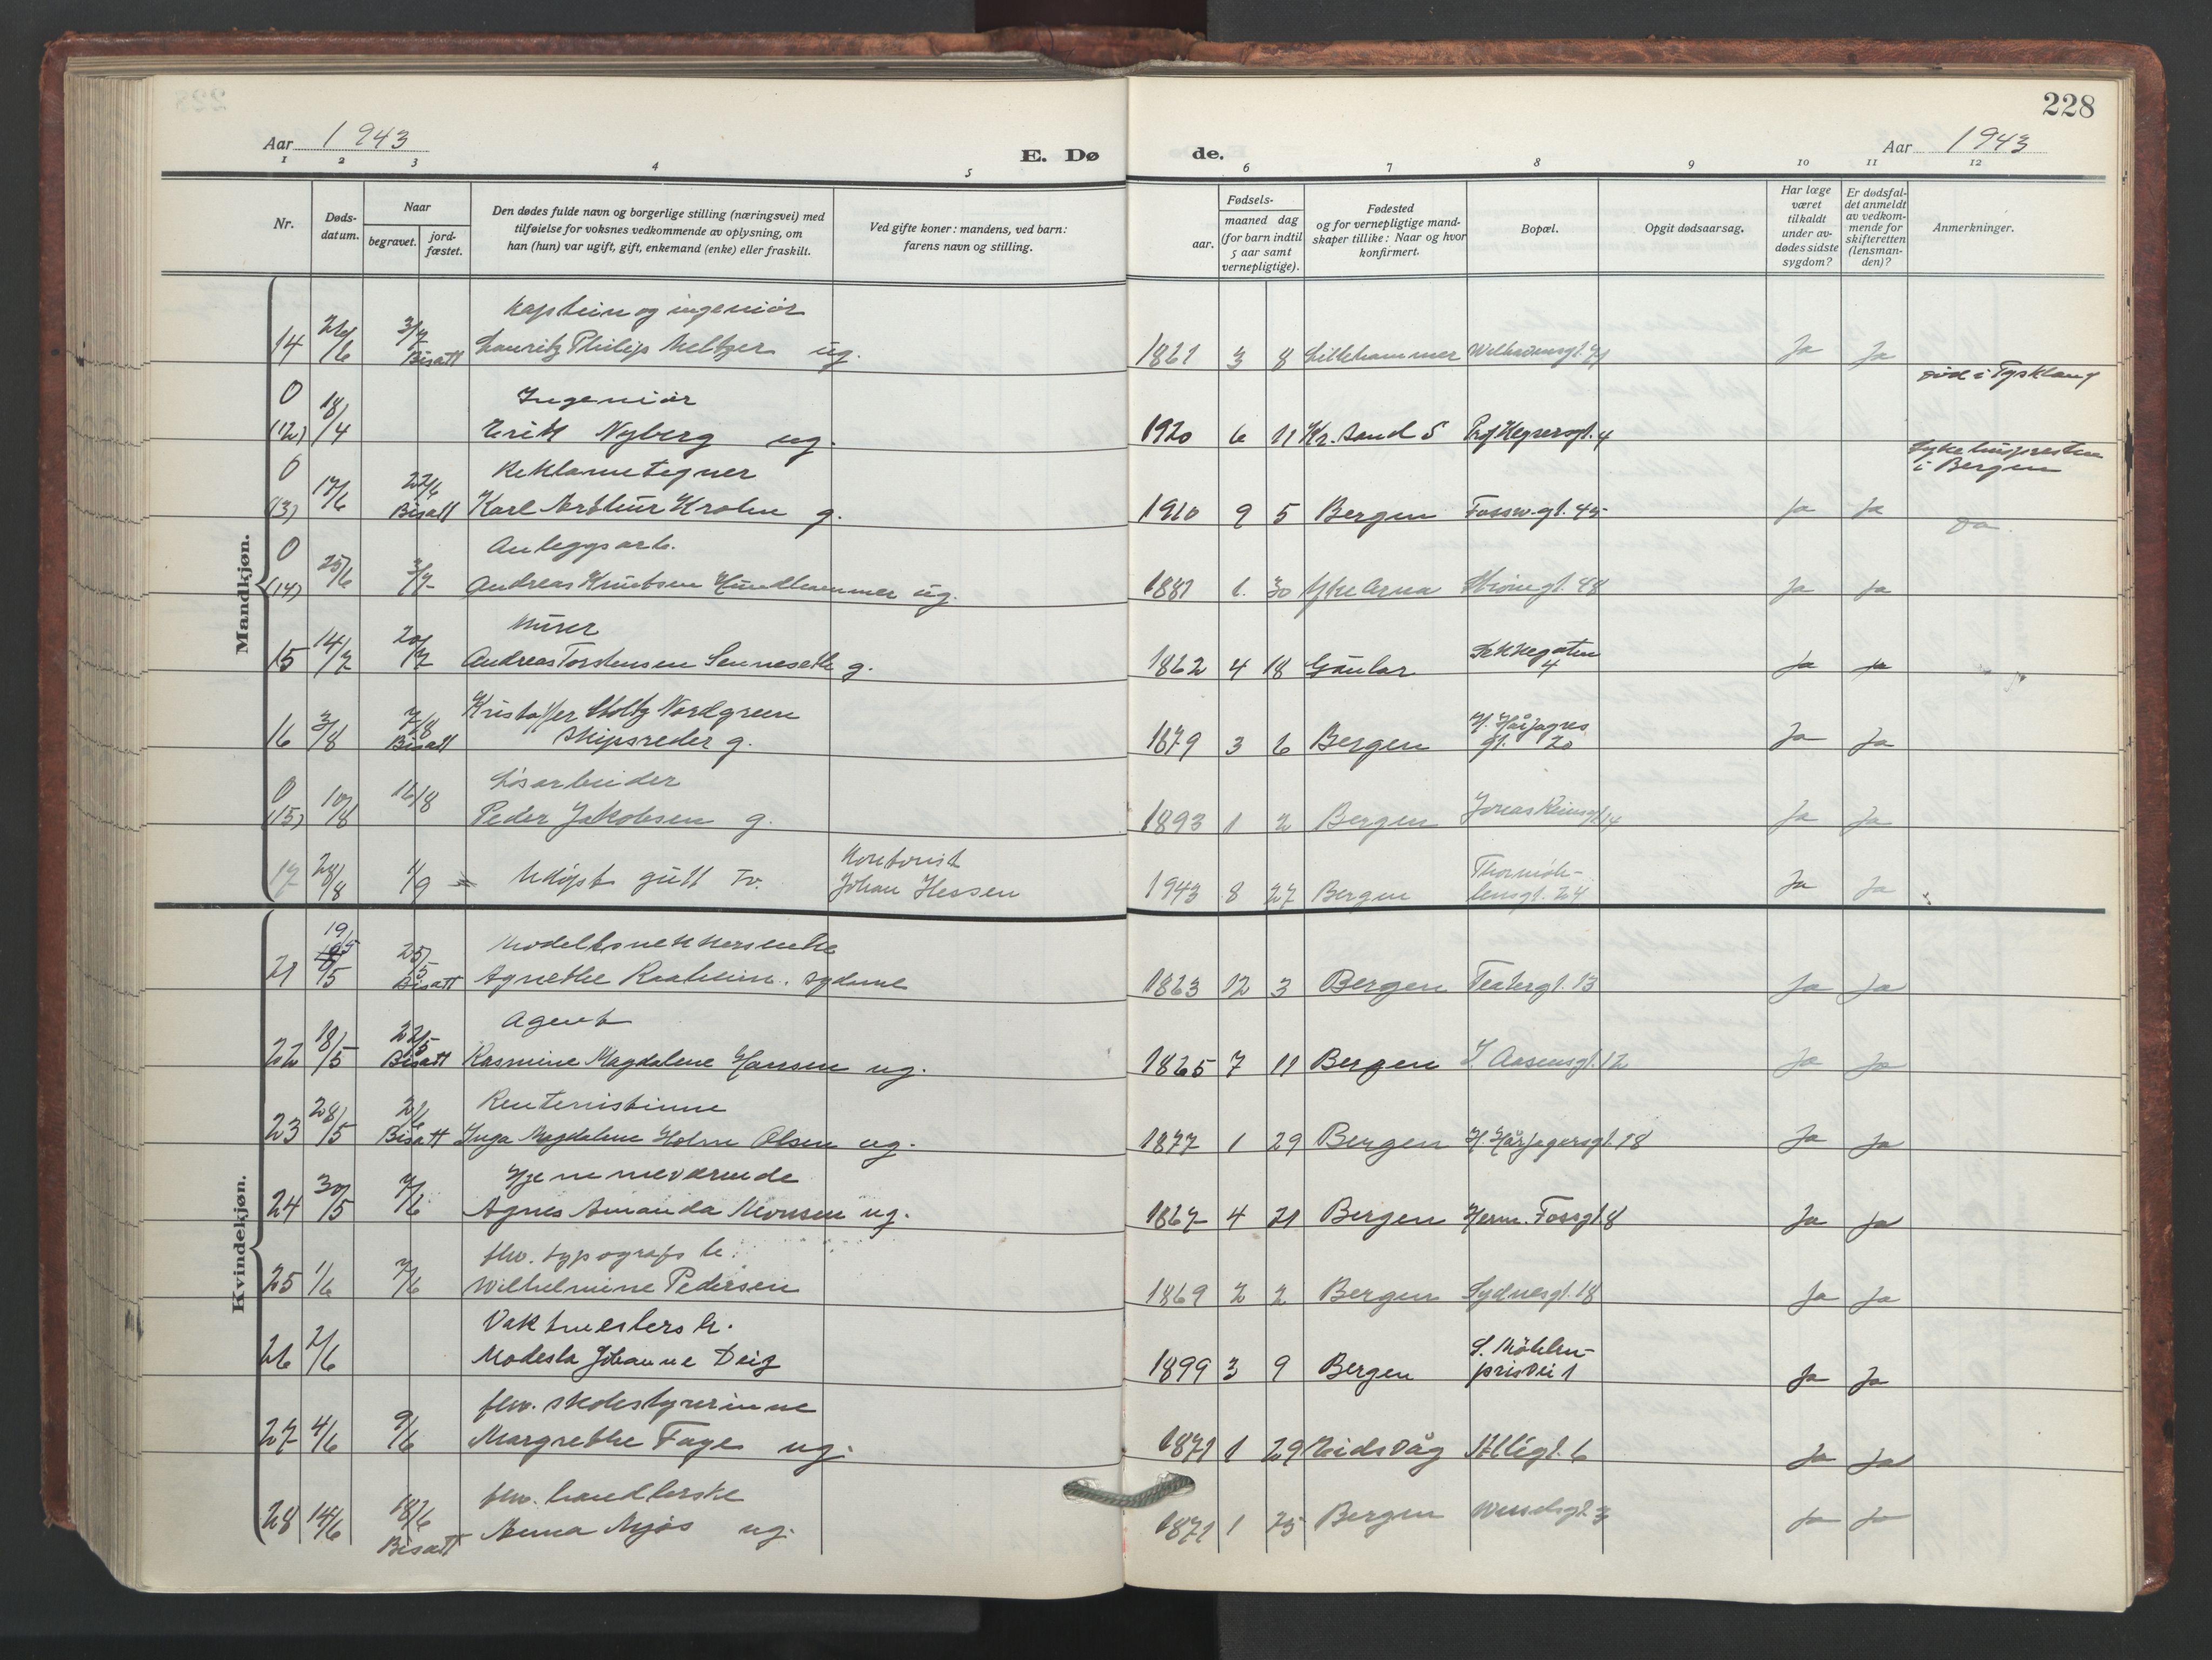 228
Aar 1943
E. Dø
de.
Aar 1943
1 2 3 4 5 6 7 8 9 10 11 12
Nr.
Døds-
datum.
Naar
begravet.
jord-
fæstet.
Den dødes fulde navn og borgerlige stilling (næringsvei) med
tilføielse for voksnes vedkommende av oplysning, om
han (hun) var ugift, gift, enkemand (enke) eller fraskilt.
Ved gifte koner: mandens, ved barn:
farens navn og stilling.
Fødsels-
aar.
maaned dag
(for barn indtil
5 aar samt
vernepligtige).
Fødested
og for vernepligtige mand-
skaper tillike: Naar og hvor
konfirmert.
Bopæl.
Opgit dødsaarsag.
Har læge
været
tilkaldt
under av-
dødes sidste
sygdom?
Er dødsfal-
det anmeldt
av vedkom-
mende for
skifteretten
(lensman-
den)?
Anmerkninger.
Mandkjøn.
Kaptein og ingeniør
14 26/6 3/7 Bisatt Lauritz Philip Meltzer ug. 1861 3 8 Lillehammer Ja Ja
død i Tyskland
Ingeniør
0 (12) 18/4 Erik Nyberg ug. 1920 6 11 Kr.sand S 4
Sykehuspresten
i Bergen
Reklametegner
0 (13) 17/6 22/6 Bisatt Karl Arthur Krohn g. 1910 9 5 Bergen Fossw.gt. 45 Ja Ja
Do
Anleggsarb.
0 (14) 25/6 3/7 Andreas Knutsen Hundhammer ug. 1881 1. 30 Ytre Arna Strømgt. 48 Ja Ja
Murer
15 14/7 20/7 Andreas Torstensen Senneseth g. 1862 4 18 Gaular Sekkegaten 4 Ja Ja
Kristoffer Stoltz Nordgreen
16 3/8 7/8 Bisatt Skipsreder g. 1879 3 6 Bergen H. Hårfagres gt. 20 Ja Ja
Løsarbeider
0 (15) 10/8 16/8 Peder Jakobsen g. 1893 1 2 Bergen Jonas Reinsgt 14 Ja Ja
Kontorist
17 28/8 1/9 Udøpt gutt Tv. Johan Hessen 1943 8 27 Bergen Thormøh-
lensgt. 24 Ja Ja
Kvindekjøn.
Modellsnekkersenke
21 19/5 25/5 Bisatt Agnethe Raaheim. 1863 12 3 Bergen Teatergt. 13 Ja Ja
Agent
22 18/5 22/5 Bisatt Rasmine Magdalene Hansen ug. 1865 7 11 Bergen I. Aasensgt. 12 Ja Ja
Rentenistinne
23 28/5 2/6 Bisatt Inga Magdalene Holm Olsen ug. 1877 1 29 Bergen H. Hårfagersgt. 18 Ja Ja
Hjemmeværende
24 30/5 7/6 Agnes Amanda Monsen ug. 1867 4 21 Bergen Herm. Fossgt. 8 Ja Ja
fhv. typografs h.
25 1/6 7/6 Wilhelmine Pedersen 1869 2 2 Bergen Sydnesgt. 18 Ja Ja
Vaktmesters h.
26 2/6 Modesta Johanne Deiz 1899 3 9 Bergen S. Møhlen-
prisvei 1 Ja Ja
fhv. skolestyrerinne
27 4/6 9/6 Margrethe Faye ug. 1871 1 29 Eidsvåg 6 Ja Ja
fhv. handlerske
28 14/6 18/6 Bisatt Anna Mjøs ug. 1871 1 25 Bergen Wesselsgt. 3 Ja Ja